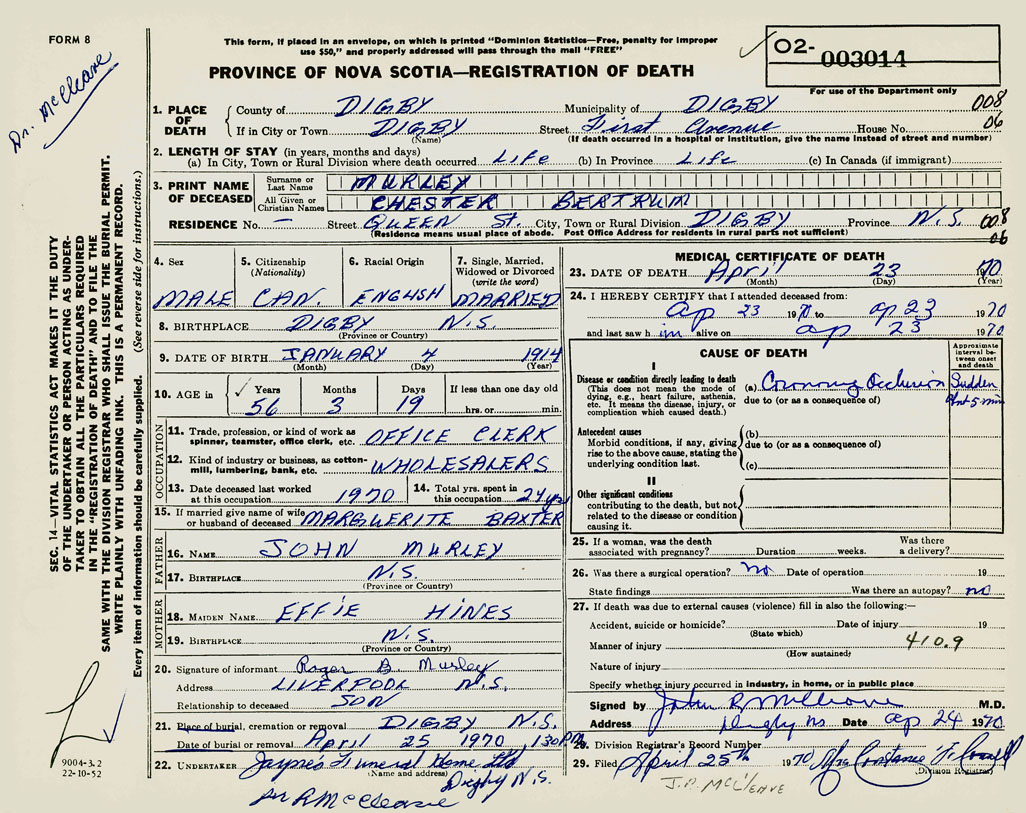 FORM 8
This form, if placed in an envelope, on which is printed "Dominion Statistics—Free, penalty for improper
use $50," and properly addressed will pass through the mail "FREE"
PROVINCE OF NOVA SCOTIA—REGISTRATION OF DEATH
02-003014
For use of the Department only
Dr. McCleave
1. PLACE OF DEATH County of DIGBY Municipality of DIGBY 008
If in City or Town DIGBY Street First Avenue House No. 06
(Name) (If death occurred in a hospital or institution, give the name instead of street and number)
2. LENGTH OF STAY (in years, months and days)
(a) In City, Town or Rural Division where death occurred Life (b) In Province Life (c) In Canada (if immigrant)
3. PRINT NAME OF DECEASED Surname or Last Name MURLEY
All Given or Christian Names CHESTER BERTRUM
RESIDENCE No. — Street QUEEN St. City, Town or Rural Division DIGBY Province N.S. 008
(Residence means usual place of abode. Post Office Address for residents in rural parts not sufficient) 06
4. Sex 5. Citizenship (Nationality) 6. Racial Origin 7. Single, Married, Widowed or Divorced (write the word)
MALE CAN. ENGLISH MARRIED
8. BIRTHPLACE DIGBY N.S.
(Province or Country)
9. DATE OF BIRTH JANUARY 4 1914
(Month) (Day) (Year)
10. AGE in Years Months Days If less than one day old
56 3 19 hrs. or min.
OCCUPATION
11. Trade, profession, or kind of work as spinner, teamster, office clerk, etc. OFFICE CLERK
12. Kind of industry or business, as cotton-mill, lumbering, bank, etc. WHOLESALERS
13. Date deceased last worked at this occupation 1970 14. Total yrs. spent in this occupation 24 yrs
15. If married give name of wife or husband of deceased MARGUERITE BAXTER
FATHER
16. NAME JOHN MURLEY
17. BIRTHPLACE N.S.
(Province or Country)
MOTHER
18. MAIDEN NAME EFFIE HINES
19. BIRTHPLACE N.S.
(Province or Country)
20. Signature of informant Roger B. Murley
Address LIVERPOOL N.S.
Relationship to deceased SON
21. Place of burial, cremation or removal DIGBY N.S.
Date of burial or removal April 25 1970 1:30 PM
22. UNDERTAKER Jayne's Funeral Home Ltd
(Name and address) Digby N.S.
MEDICAL CERTIFICATE OF DEATH
23. DATE OF DEATH April 23 1970
(Month) (Day) (Year)
24. I HEREBY CERTIFY that I attended deceased from:
ap 23 1970 to ap 23 1970
and last saw him alive on ap 23 1970
CAUSE OF DEATH
Approximate interval between onset and death
I
Disease or condition directly leading to death (a) Coronary Occlusion Sudden
(This does not mean the mode of dying, e.g., heart failure, asthenia, etc. It means the disease, injury, or complication which caused death.) due to (or as a consequence of) 5 min
Antecedent causes (b)
Morbid conditions, if any, giving rise to the above cause, stating the underlying condition last. due to (or as a consequence of)
(c)
II
Other significant conditions
contributing to the death, but not related to the disease or condition causing it.
25. If a woman, was the death associated with pregnancy? Duration weeks. Was there a delivery?
26. Was there a surgical operation? no Date of operation 19
State findings Was there an autopsy? no
27. If death was due to external causes (violence) fill in also the following:—
Accident, suicide or homicide? Date of injury 19
(State which)
Manner of injury 410.9
(How sustained)
Nature of injury
Specify whether injury occurred in industry, in home, or in public place
Signed by John R McCleave M.D.
Address Digby ns Date ap 24 1970
28. Division Registrar's Record Number
29. Filed April 25th 1970 Mrs Constance
(Division Registrar)
J.R. MCCLEAVE
McCleave
SEC. 14—VITAL STATISTICS ACT MAKES IT THE DUTY
OF THE UNDERTAKER OR PERSON ACTING AS UNDER-
TAKER TO OBTAIN ALL THE PARTICULARS REQUIRED
IN THE "REGISTRATION OF DEATH" AND TO FILE THE
SAME WITH THE DIVISION REGISTRAR WHO SHALL ISSUE THE BURIAL PERMIT.
WRITE PLAINLY WITH UNFADING INK. THIS IS A PERMANENT RECORD.
Every item of information should be carefully supplied. (See reverse side for instructions.)
9004-3.2
22-10-52